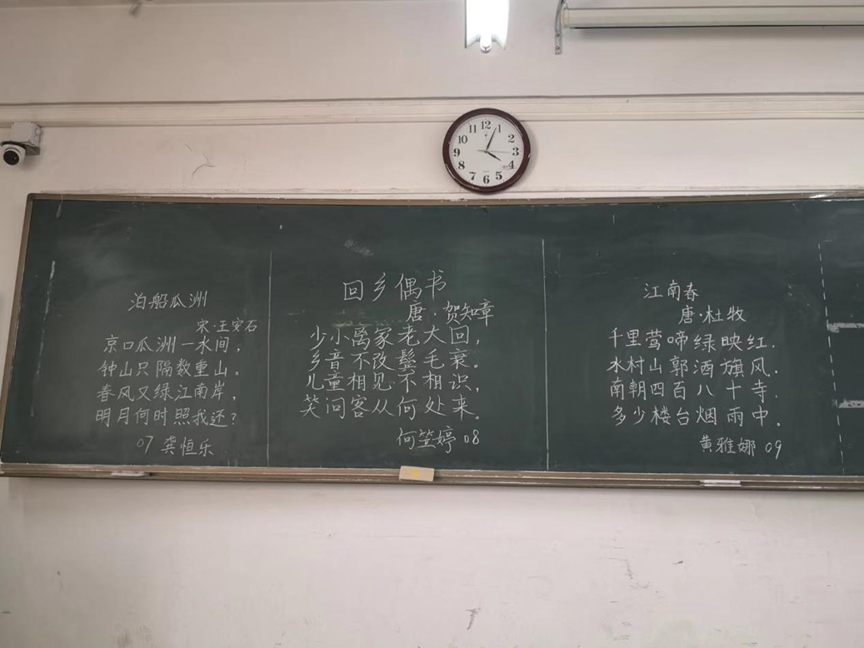 泊船瓜洲
宋·王安石
京口瓜洲一水间,
钟山只隔数重山。
春风又绿江南岸,
明月何时照我还?
07 龚恒乐
回乡偶书
唐·贺知章
少小离家老大回,
乡音不改鬓毛衰。
儿童相见不相识,
笑问客从何处来。
何笠婷 08
江南春
唐·杜牧
千里莺啼绿映红.
水村山郭酒旗风.
南朝四百八十寺.
多少楼台烟雨中.
黄雅娜 09
12
1
2
3
4
5
6
7
8
9
10
11